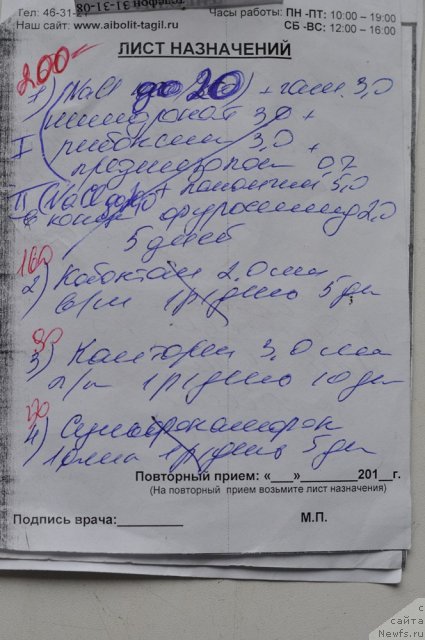 телефон 31-31-08
Тел: 46-31-2
Часы работы: ПН -ПТ: 10:00 – 19:00
Наш сайт: www.aibolit-tagil.ru
СБ -ВС: 12:00 – 16:00
ЛИСТ НАЗНАЧЕНИЙ
200=
1) (NaCl до 20) + гам. 3,0
милдронат 3,0 +
I рибоксин 3,0 +
преднизолон 0,7
II (NaCl + панангин 5,0
в конце фуросемид 2,0
5 дней
160
2) Кобактан 2,0 мл
в/м 1 р/день 5 дн
90
3) Канторен 3,0 мл
п/к 1 р/день 10 дн
4)
1 р/день 5 дн
Повторный прием: «___»_________201__г.
(На повторный прием возьмите лист назначения)
Подпись врача:_________
М.П.
с сайта
Newfs.ru